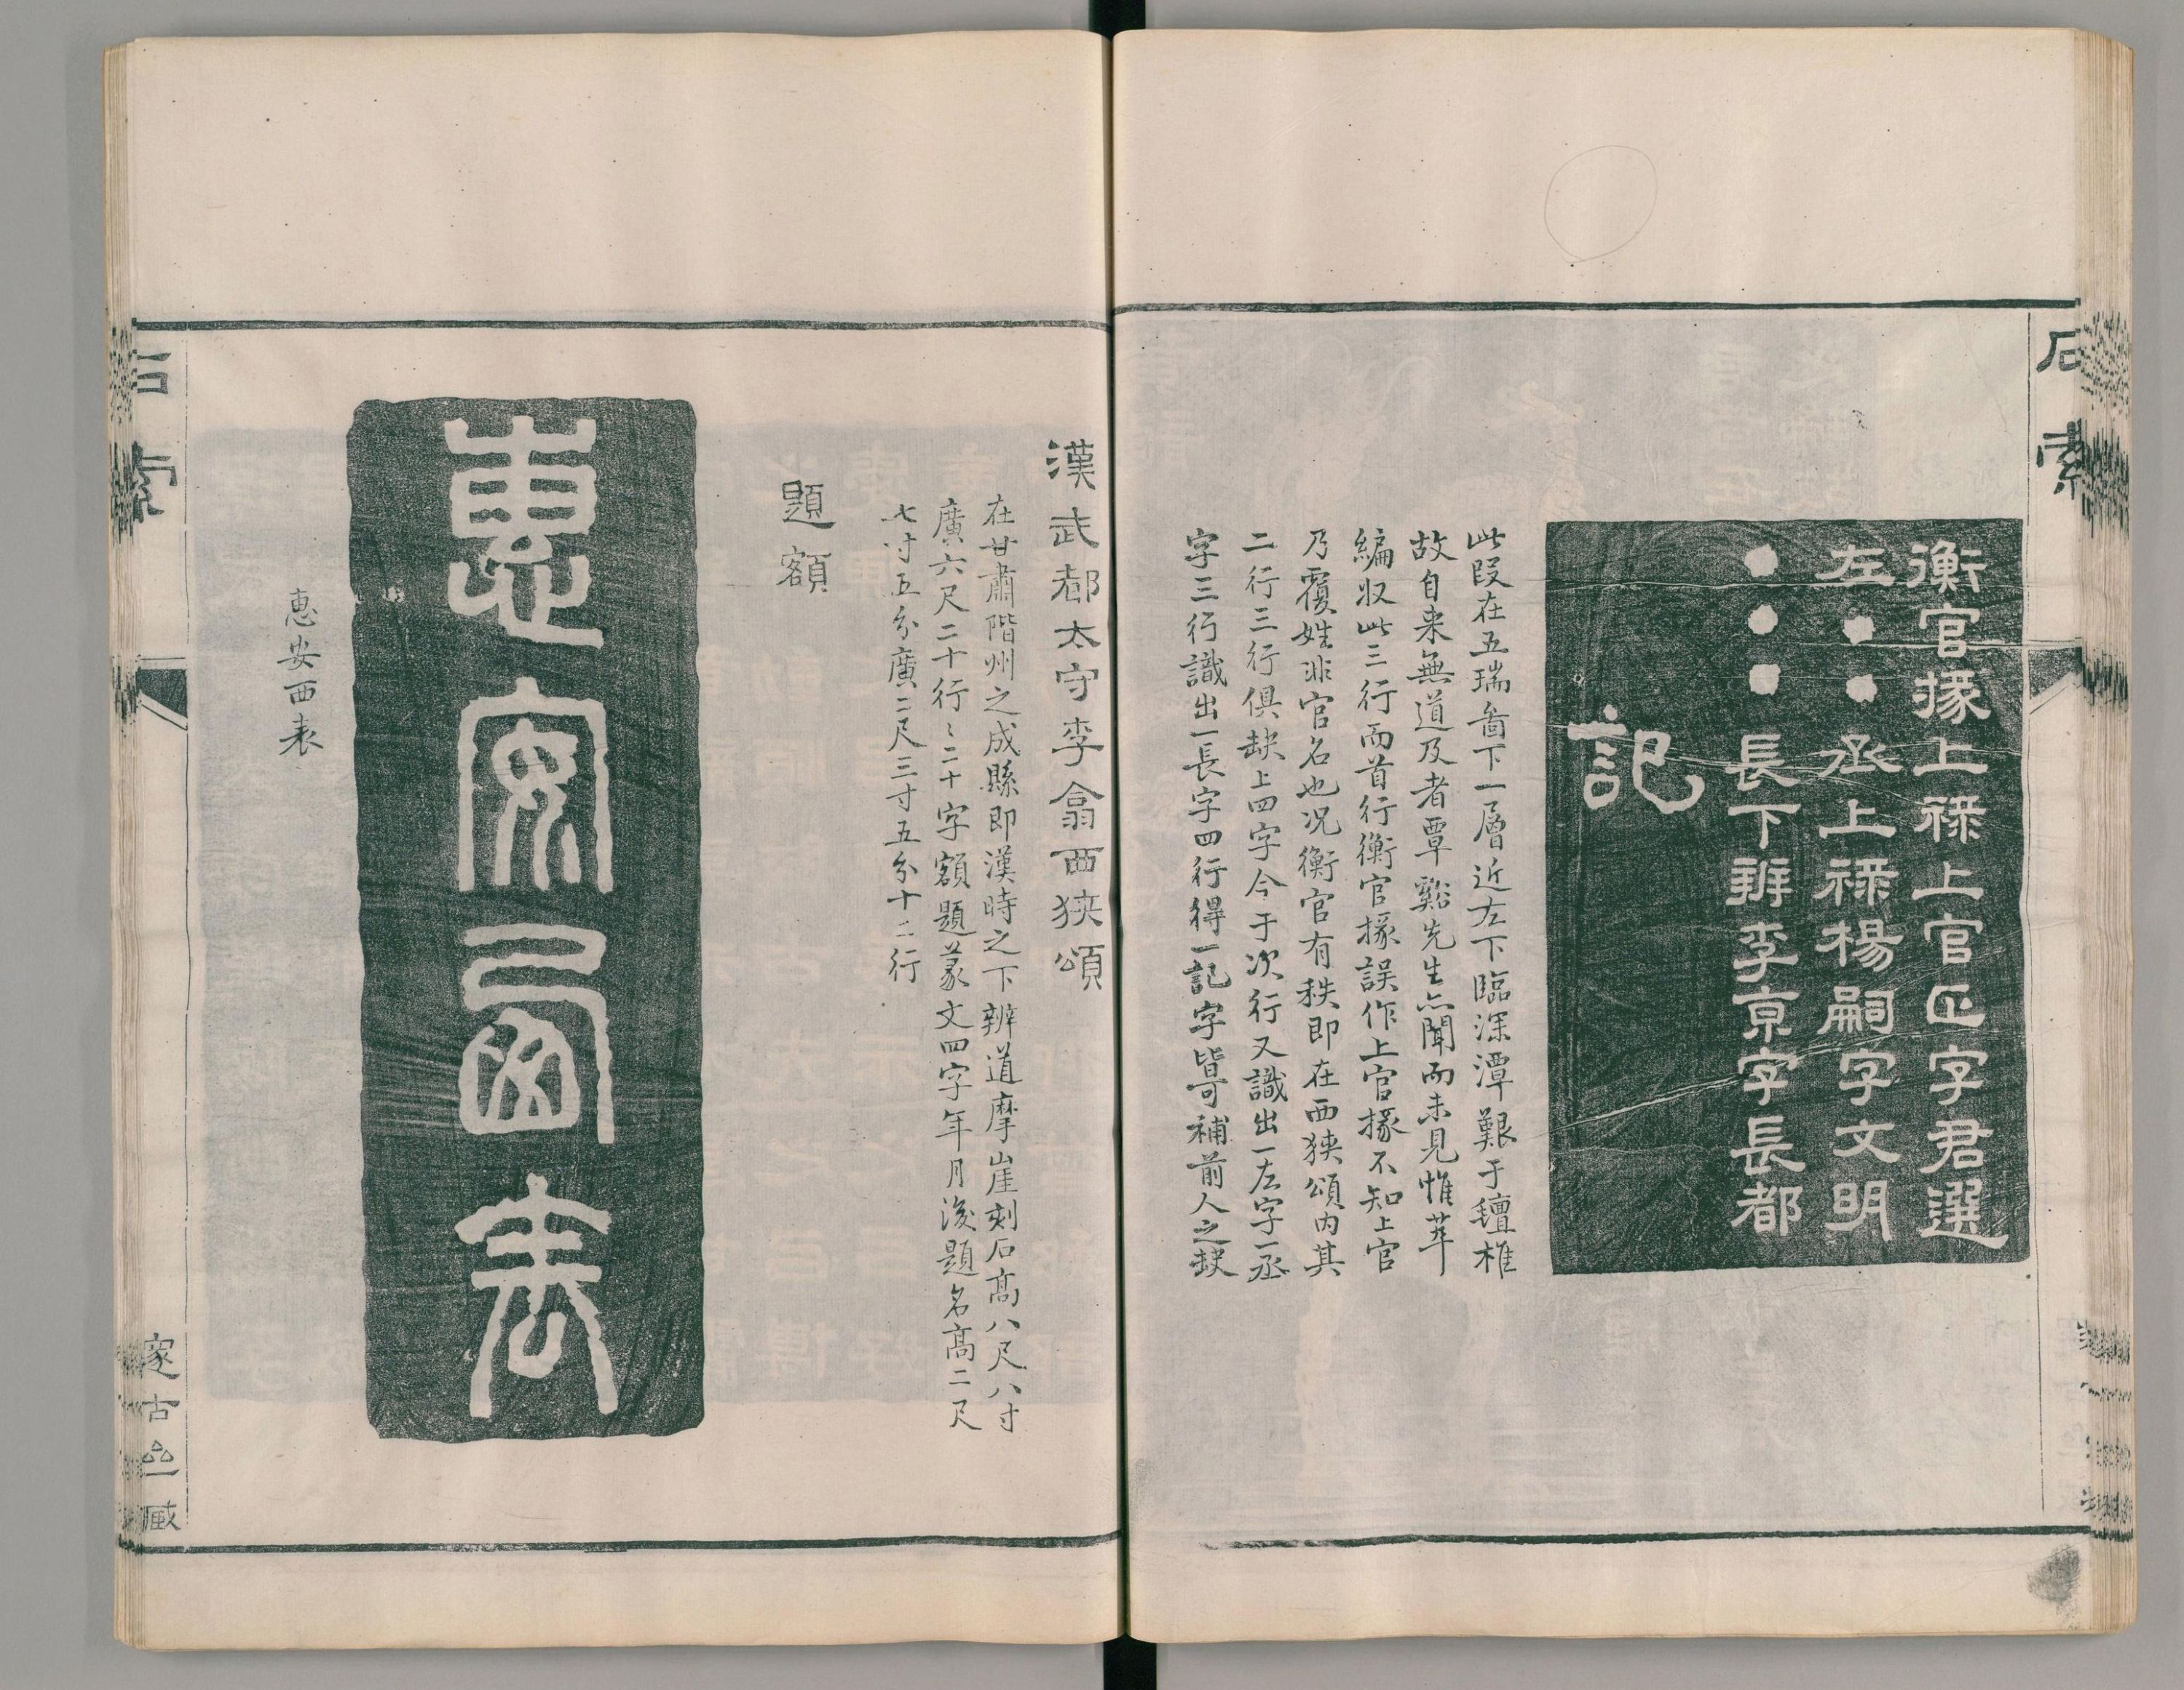 石索
衡官掾上祿上官正字君選
左●●丞上祿楊嗣字文明
●●●長下辨李京字長都
記
此段在五瑞啚下一層近左下臨深潭艱于氊椎
故自来無道及者覃谿先生亦聞而未見惟萃
編収此三行而首行衡官掾誤作上官掾不知上官
乃覆姓非官名也况衡官有秩即在西狹頌内其
二行三行俱缺上四字今于次行又識出一左字一丞
字三行識出一長字四行得一記字皆可補前人之缺
漢武都太守李翕西狹頌
在甘肅階州之成縣即漢時之下辨道摩崖刻石高八尺八寸
廣六尺二十行〻二十字額題篆文四字年月後題名高二尺
七寸五分廣二尺三寸五分十二行
題額
惠安西表
惠安西表
石索